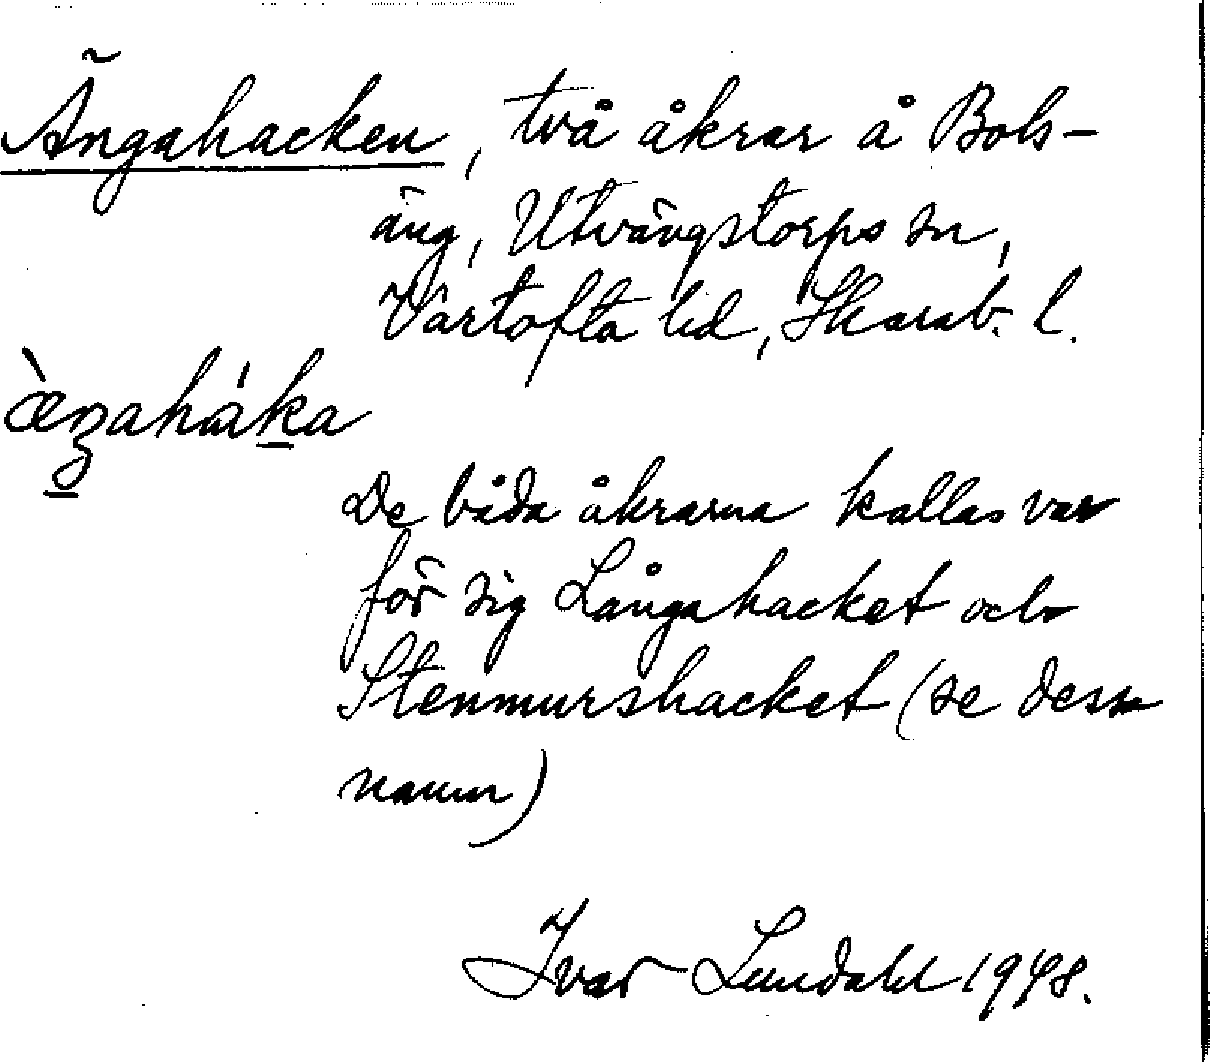 Ängahacken, två åkrar å Bols-
äng, Utvängstorps sn,
Vartofta hd, Skarab. l.
æ̀ŋaháka
De båda åkrarna kallas var
för sig Långahacket och
Stenmurshacket (se dessa
namn)
Ivar Lundahl 1948.